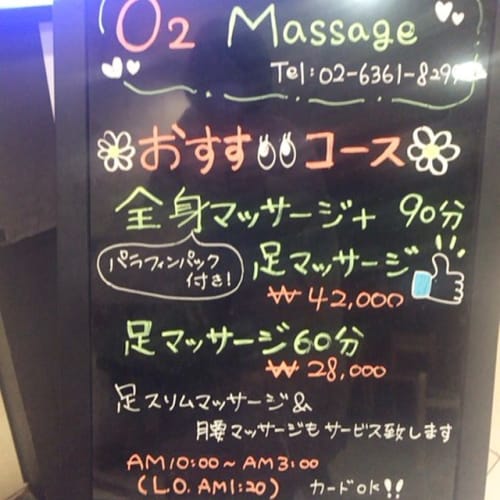 O2 Massage
Tel:02-6361-829
おすすめコース
全身マッサージ+ 90分
足マッサージ
パラフィンパック
付き!
₩42,000
足マッサージ60分
₩28,000
足スリムマッサージ&
腰マッサージもサービス致します
AM10:00~AM3:00
(L.O. AM1:20) カードOK!!